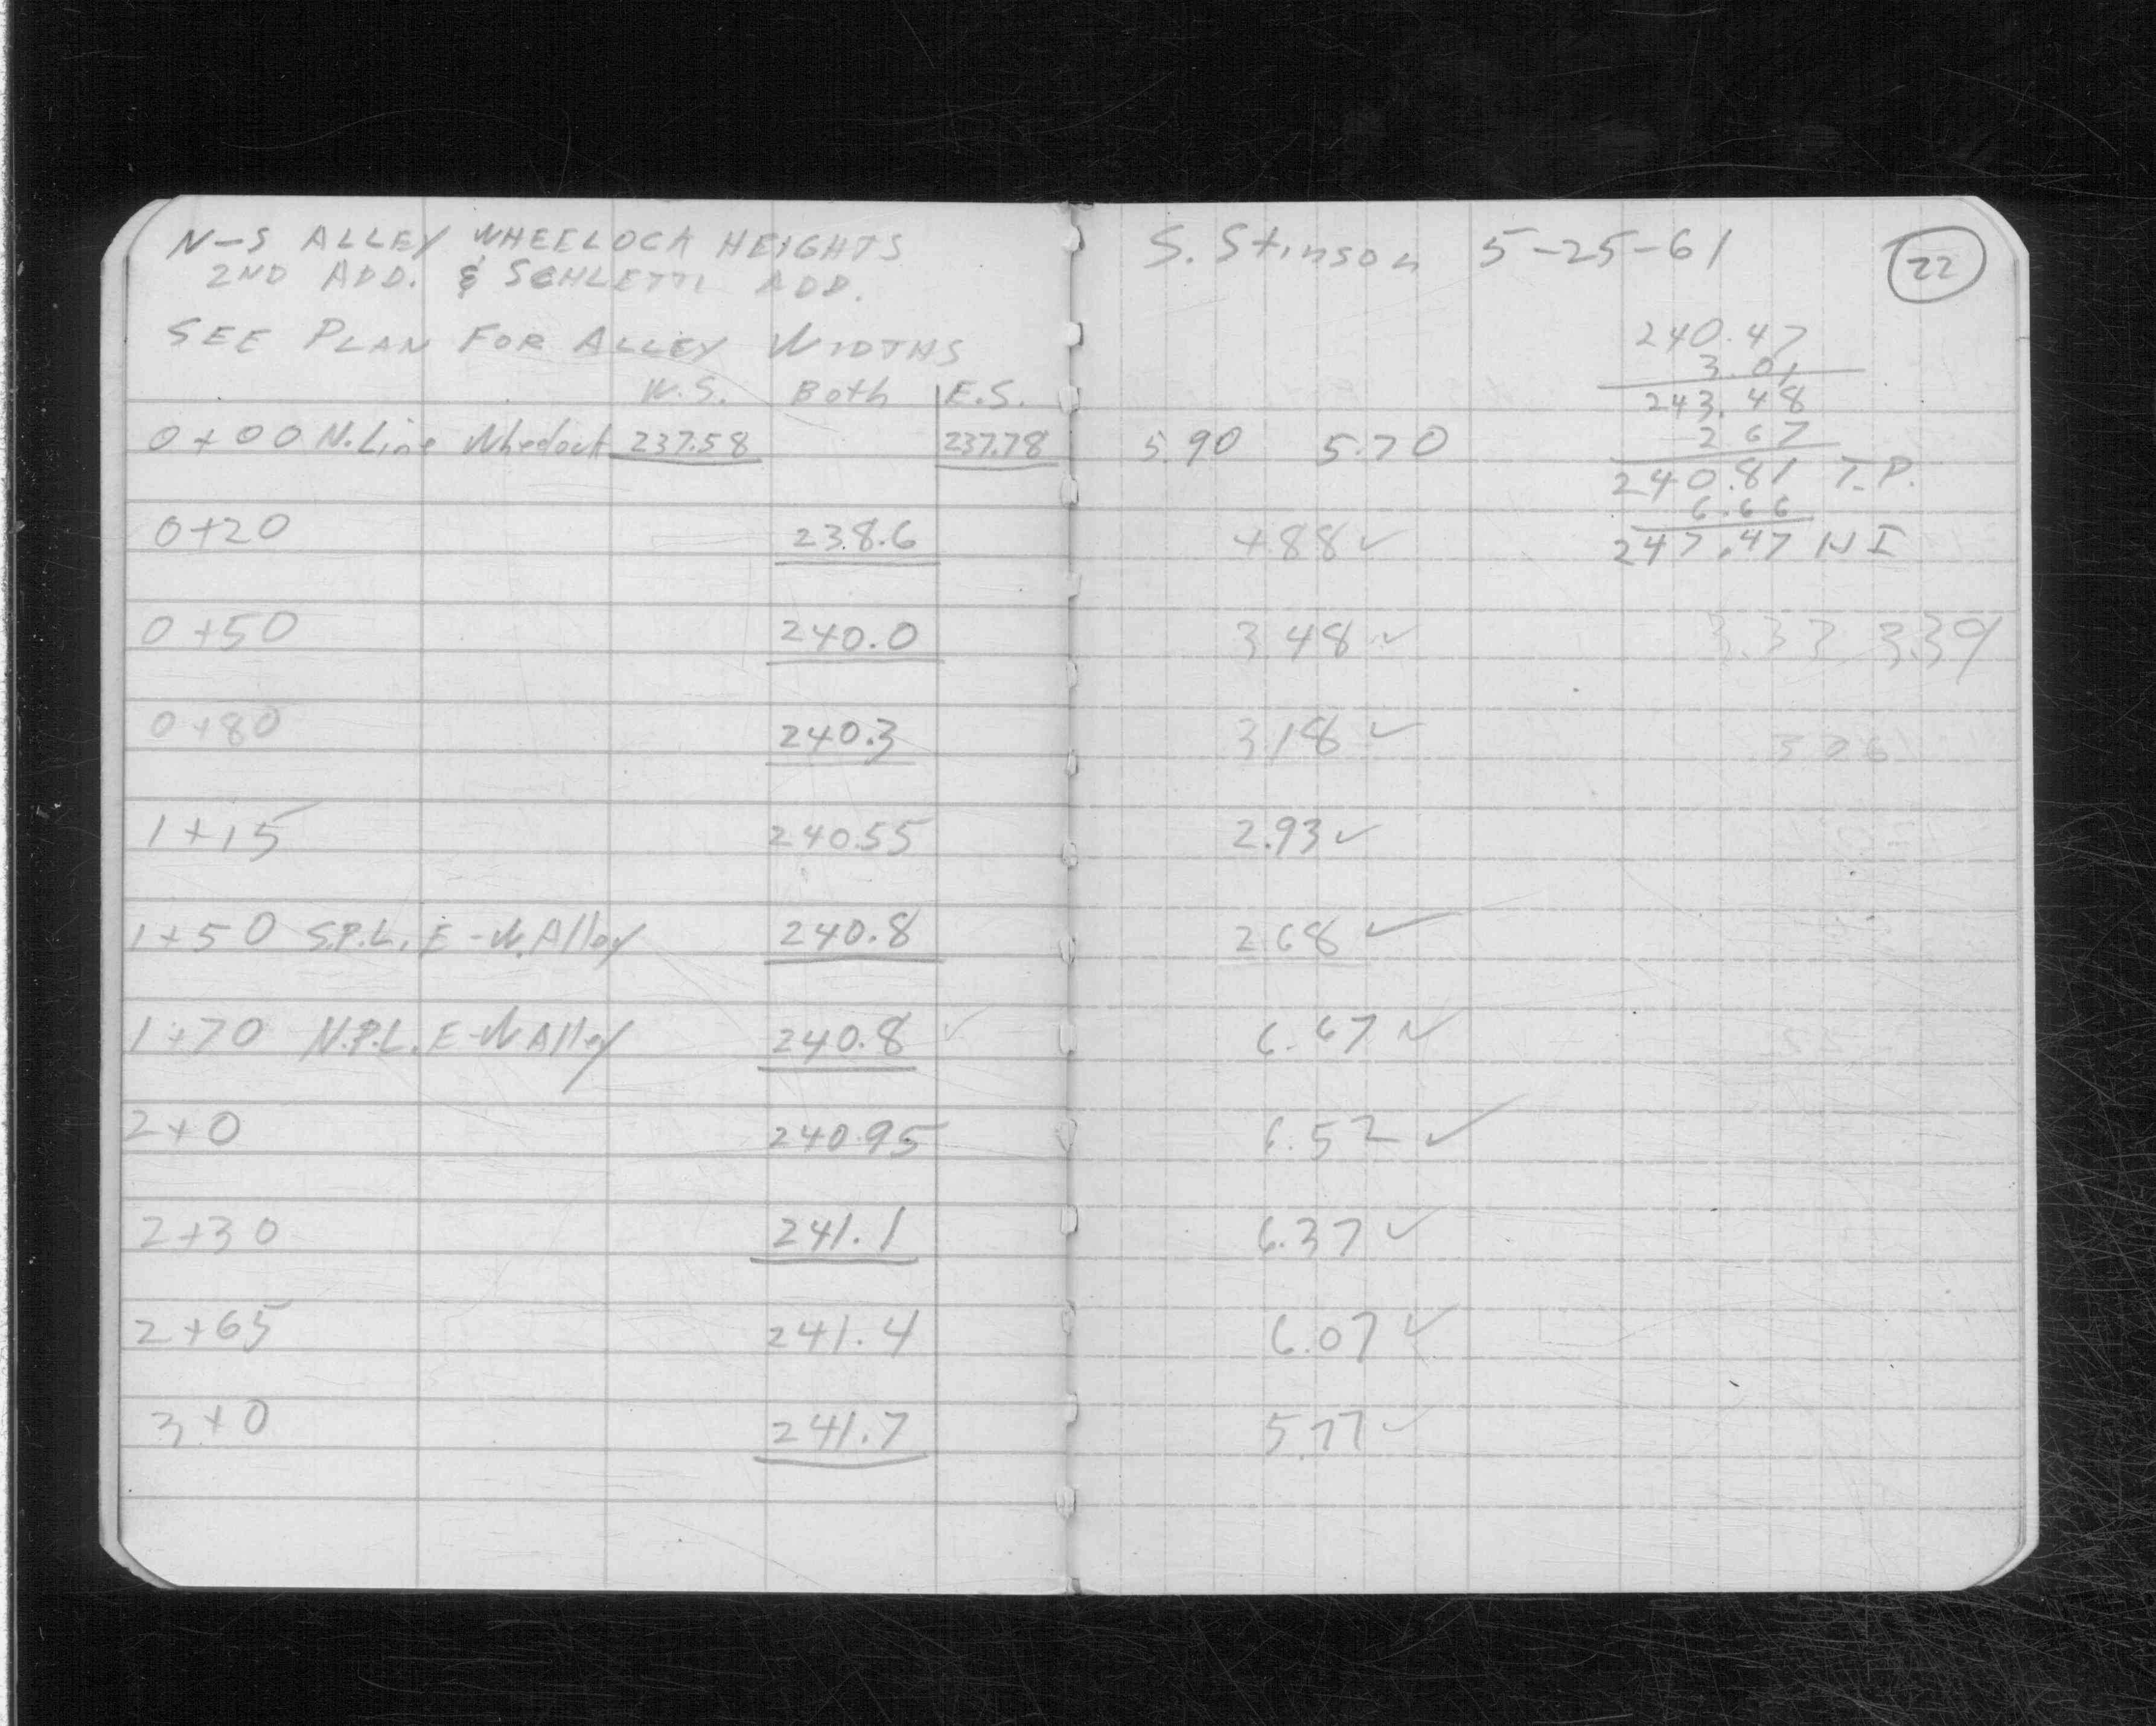 N-S ALLEY WHEELOCK HEIGHTS
2ND ADD. & SCHLETTI ADD.
SEE PLAN FOR ALLEY WIDTHS
W.S. Both E.S.
0+00 N. Line Wheelock 237.58 237.78
0+20 238.6
0+50 240.0
0+80 240.3
1+15 240.55
1+50 S.P.L. E-W. Alley 240.8
1+70 N.P.L. E-W Alley 240.8 ✓
2+0 240.95
2+30 241.1
2+65 241.4
3+0 241.7
S. Stinson 5-25-61 22
240.47
3.01
243.48
5.90 5.70 2 67
240.81 T.P.
6.66
4.88 ✓ 247.47 HI
3 48 ✓ 3.33 3.39
3 18 ✓ 3 06
2.93 ✓
2 68 ✓
6.67 ✓
6.52 ✓
6.37 ✓
6.07 ✓
5.77 ✓